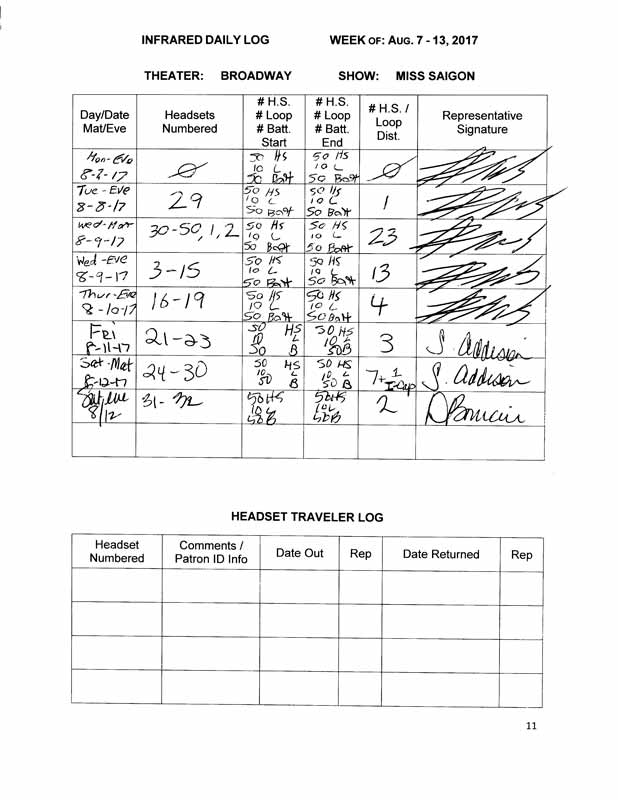 INFRARED DAILY LOG WEEK OF: AUG. 7 - 13, 2017
THEATER: BROADWAY SHOW: MISS SAIGON
Day/Date Mat/Eve
Headsets Numbered
# H.S. # Loop # Batt. Start
# H.S. # Loop # Batt. End
# H.S. / Loop Dist.
Representative Signature
Mon-Eve 8-7-17 Ø 50 HS 10 L 50 Batt 50 HS 10 L 50 Batt Ø
Tue-Eve 8-8-17 29 50 HS 10 L 50 Batt 50 HS 10 L 50 Batt 1
Wed-Mat 8-9-17 30-50, 1, 2 50 HS 10 L 50 Batt 50 HS 10 L 50 Batt 23
Wed-Eve 8-9-17 3-15 50 HS 10 L 50 Batt 50 HS 10 L 50 Batt 13
Thur-Eve 8-10-17 16-19 50 HS 10 L 50 Batt 50 HS 10 L 50 Batt 4
Fri 8-11-17 21-23 50 HS 10 L 50 B 50 HS 10 L 50B 3 S. Addison
Sat-Mat 8-12-17 24-30 50 HS 10 L 50 B 50 HS 10 L 50 B 7+1 I-Cap S. Addison
Sat, eve 8/12 31-32 50HS 10L 50B 50HS 10L 50B 2
HEADSET TRAVELER LOG
Headset Numbered
Comments / Patron ID Info
Date Out
Rep
Date Returned
Rep
11